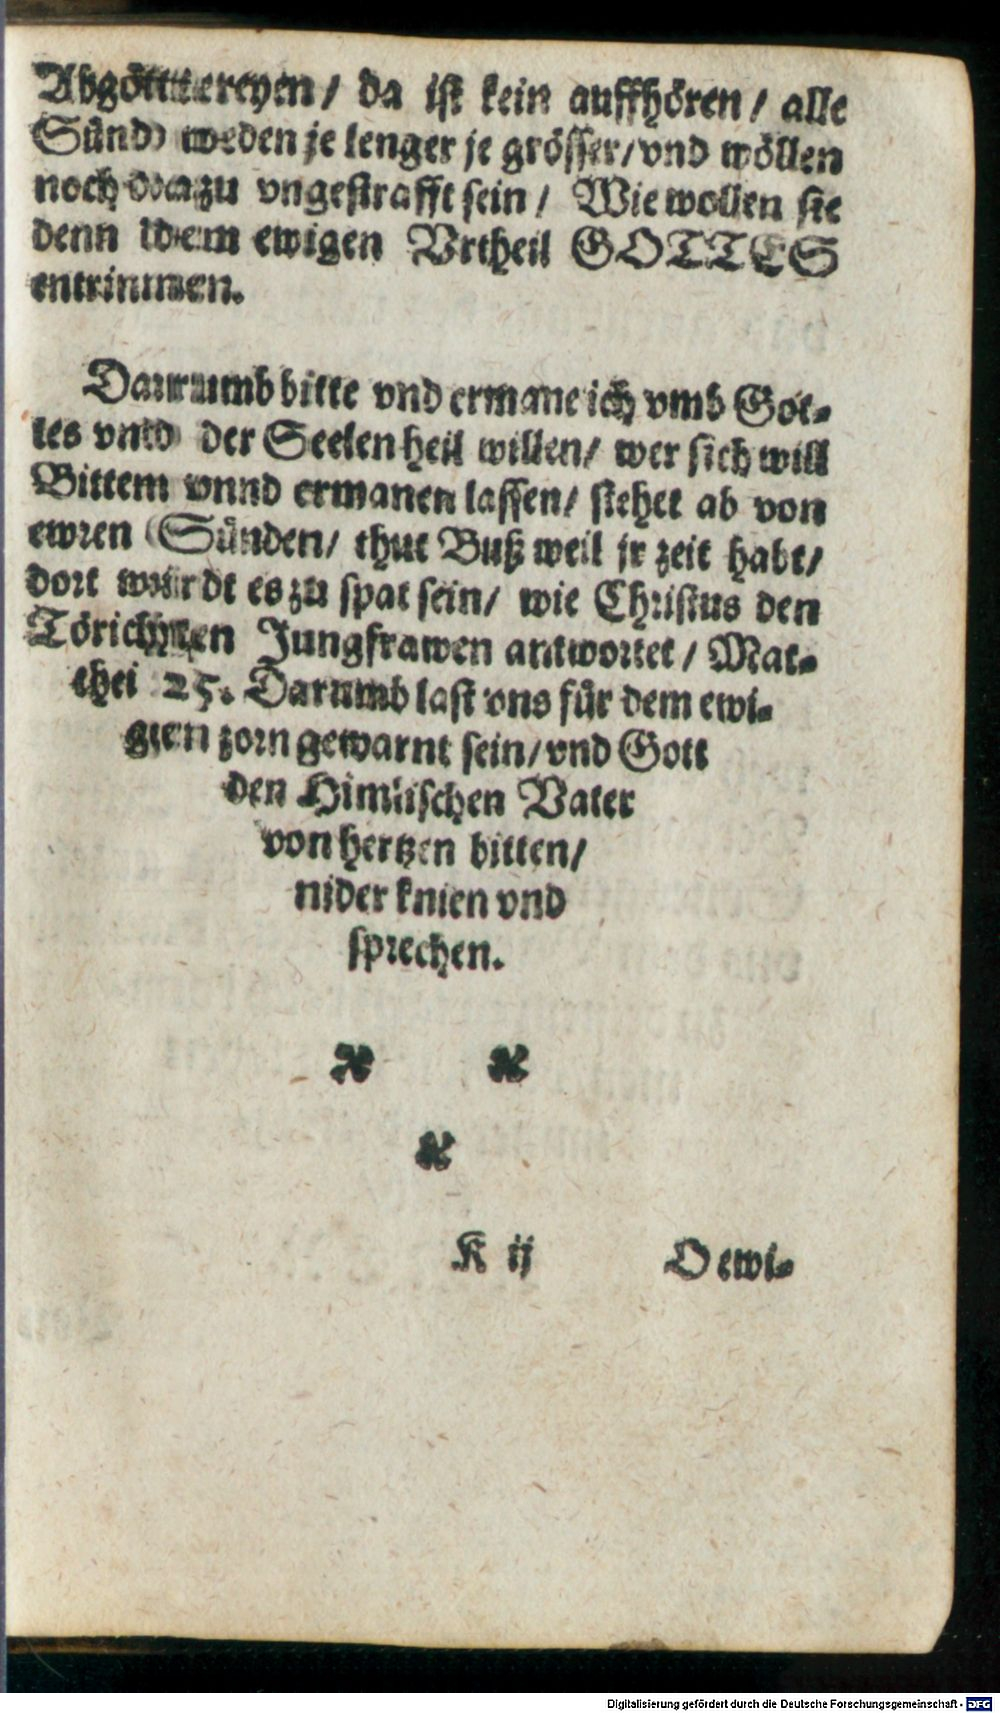 Abgöttereyen / da ist kein auffhören / alle
Sünd weden je lenger je grösser / vnd wöllen
noch dazu vngestrafft sein / Wie wollen sie
denn dem ewigen Vrtheil GOTTES
entrinnen.
Darumb bitte vnd ermane ich vmb Got-
tes vnd der Seelen heil willen / wer sich will
Bitten vnnd ermanen lassen / stehet ab von
ewren Sünden / thut Buß weil jr zeit habt /
dort wurdt es zu spat sein / wie Christus den
Törichten Jungfrawen antwortet / Mat-
thei 25. Darumb last vns für dem ewi-
gen zorn gewarnt sein / vnd Gott
den Himlischen Vater
von hertzen bitten /
nider knien vnd
sprechen.
K ij O ewi-
Digitalisierung gefördert durch die Deutsche Forschungsgemeinschaft - DFG